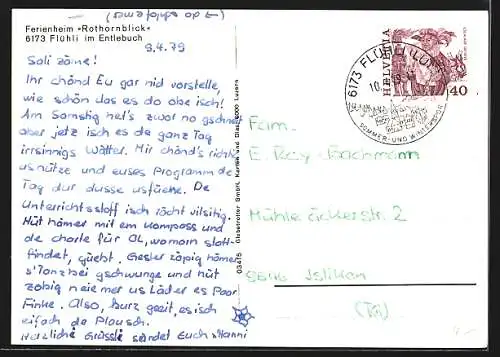 Ferienheim «Rothornblick»
6173 Flühli im Entlebuch
9.4.79
Sali zäme!
Ihr chönd Eu gar nid vorstelle,
wie schön das es do obe isch!
Am Samstig het's zwor no gschneit
aber jetz isch es de ganz Tag
irrsinnigs Wätter. Mir chönd's richtig
usnütze und euses Programm de
Tag dur dusse usfüehre. De
Unterrichtsstoff isch rächt vilsitig.
Hüt hämer mit em Kompass und
de charte für OL, womorn statt-
findet, güebt. Gester z'obig hämer
s'Tanzbei gschwunge und hüt
zobig nelemer us Läder es Paar
Finke. Also, kurz gseit, es isch
eifach de Plausch.
Herzlichi Grüessli sändet Euch s'Hanni
03415 Globetrotter GmbH, Karten und Dias, 6000 Luzern
6173 FLÜHLI (LU)
SOMMER- UND WINTERSPORT
HELVETIA
40
Fam.
E. Ray-Bachmann
Mühleäckerstr. 2
8546 Islikon
(TG)